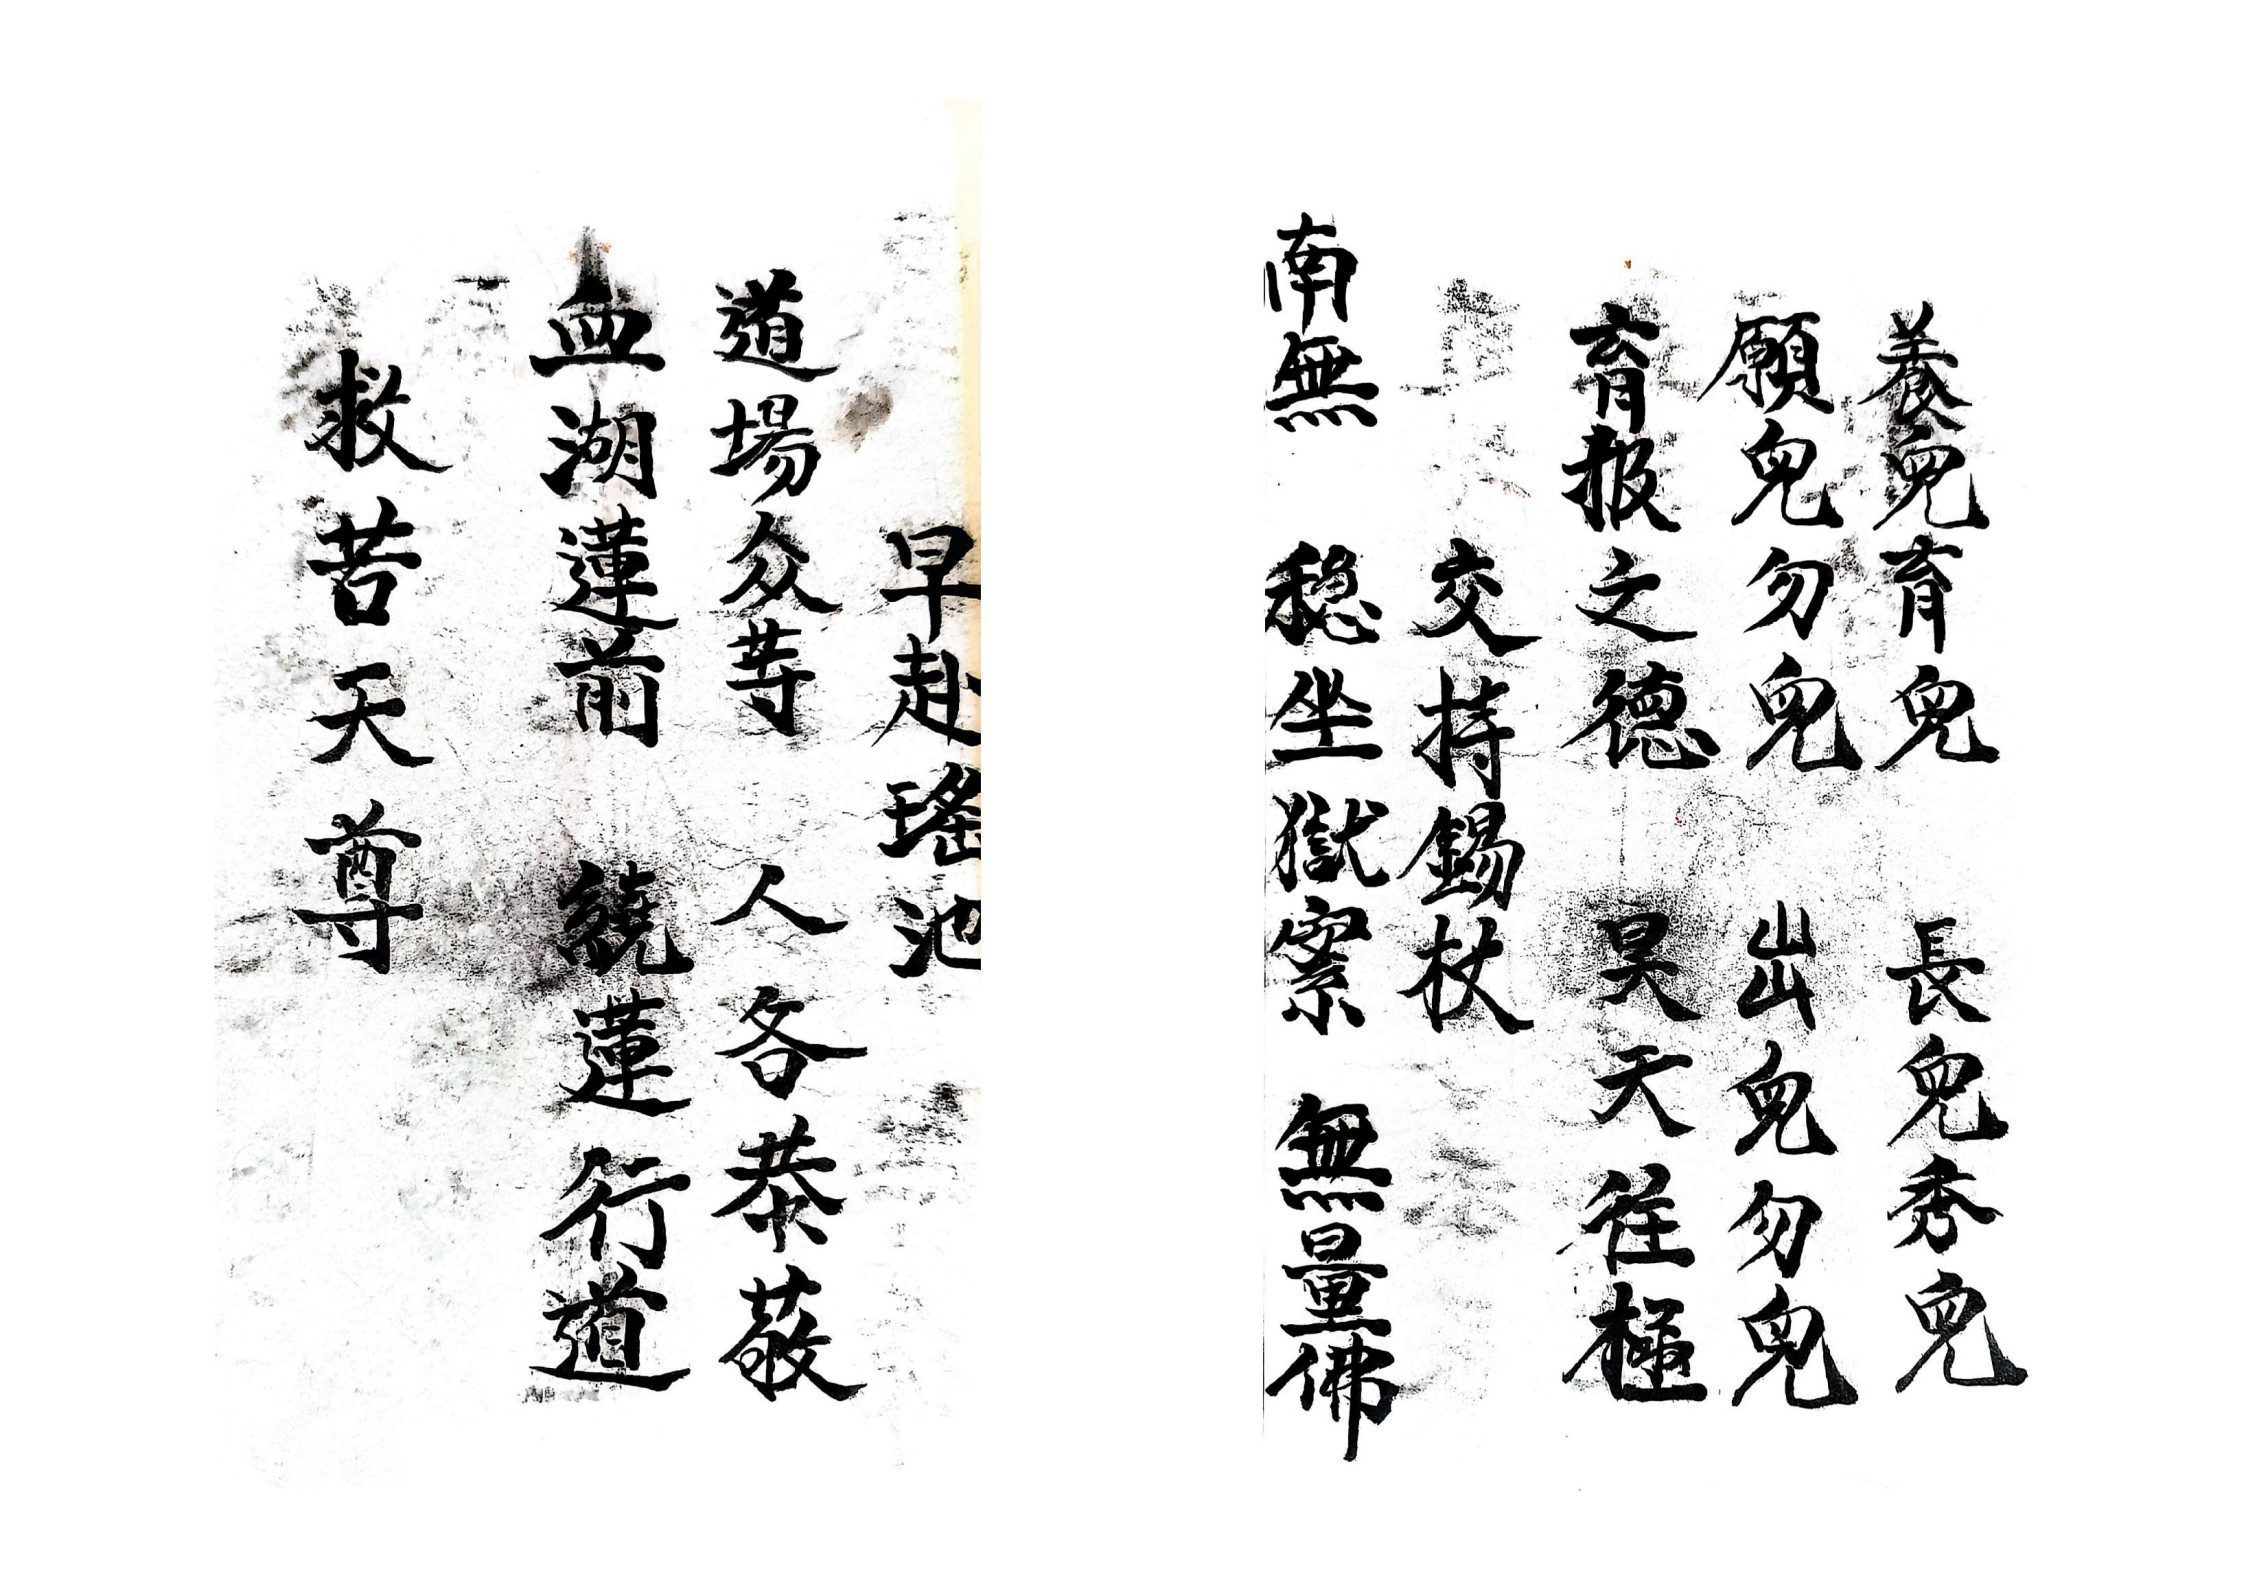 養兒育兒 長兒秀兒
願兒勿兒 出兒勿兒
育报之德 昊天徃極
交持錫杖
南無 稳坐獄 無量佛
早赴瑤池
道場众等 人各恭敬
血湖蓮前 繞蓮行道
救苦天尊